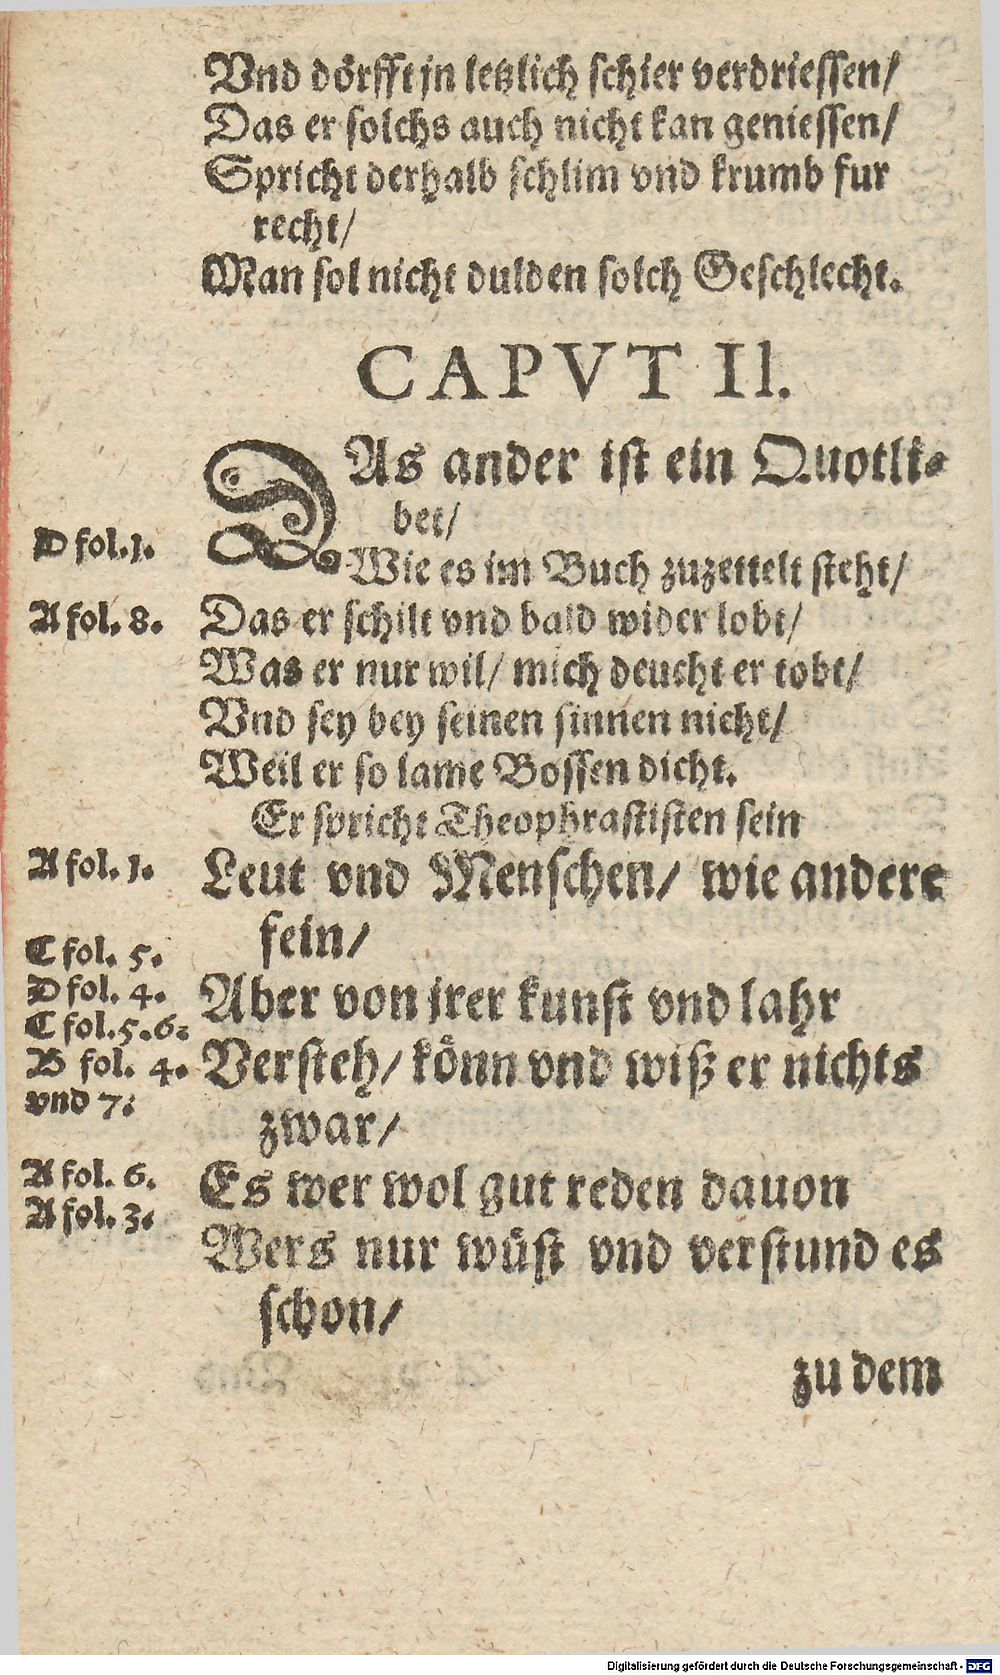 Vnd dörfft jn letzlich schier verdriessen/
Das er solchs auch nicht kan geniessen/
Spricht derhalb schlim vnd krumb fur
recht/
Man sol nicht dulden solch Geschlecht.
CAPVT II.
DAs ander ist ein Quotli-
bet/
D fol. 1.
Wie es im Buch zuzettelt steht/
A fol. 8.
Das er schilt vnd bald wider lobt/
Was er nur wil/ mich deucht er tobt/
Vnd sey bey seinen sinnen nicht/
Weil er so lame Bossen dicht.
Er spricht Theophrastisten sein
A fol. 1.
Leut vnd Menschen/ wie andere
fein/
C fol. 5.
D fol. 4.
Aber von jrer kunst vnd lahr
C fol. 5. 6.
B fol. 4.
Versteh/ könn vnd wiß er nichts
vnd 7.
zwar/
A fol. 6.
Es wer wol gut reden dauon
A fol. 3.
Wers nur wüst vnd verstund es
schon/
zu dem
Digitalisierung gefördert durch die Deutsche Forschungsgemeinschaft - DFG